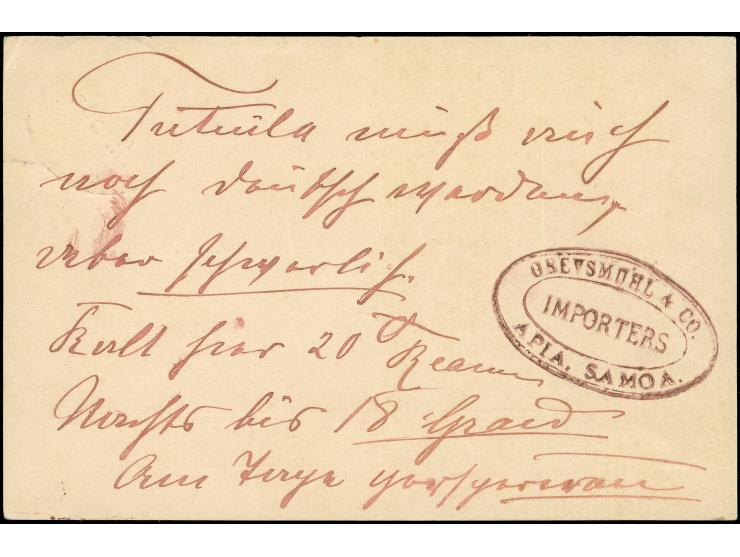 Tutuila muß auch
noch deutsch werden,
aber schwerlich.
Kalt hier 20°
Nachts bis 18 Grad
Am Tage
GREVSMÜHL & CO.
IMPORTERS
APIA, SAMOA.